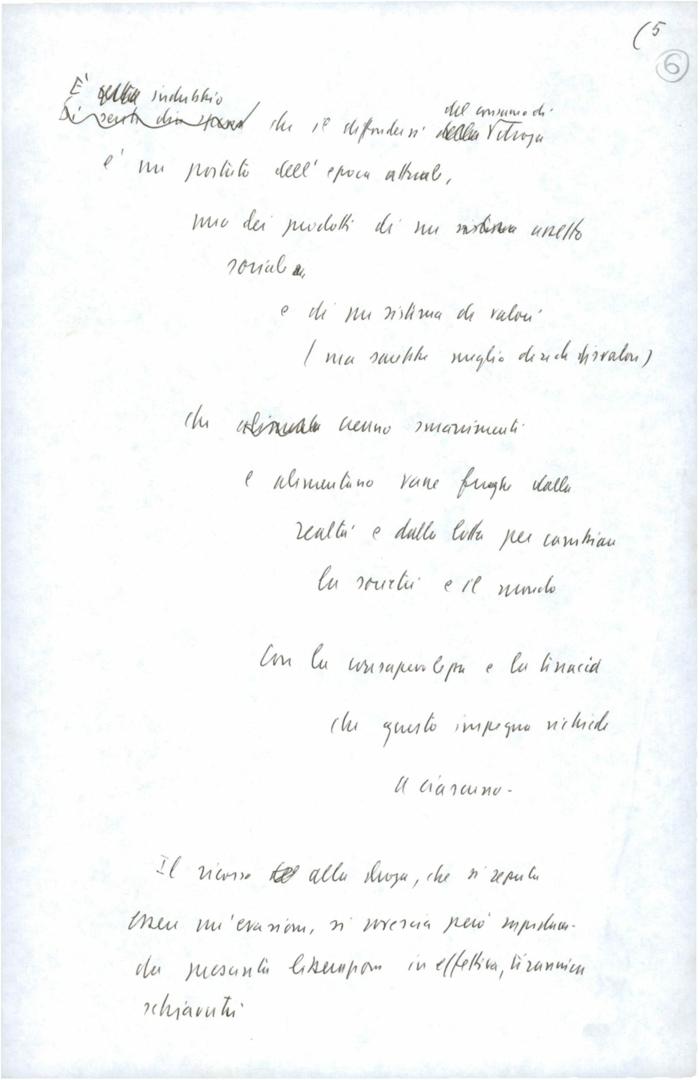 (5
6
È indubbio
del consumo di
che il diffondersi della droga
e' un portato dell'epoca attuale,
uno dei prodotti di un sistema assetto
sociale
e di un sistema di valori
(ma sarebbe meglio dire di disvalori)
che creano smarrimenti
e alimentano vane fughe dalla
realtà e dalla lotta per cambiare
la società e il mondo
Con la consapevolezza e la tenacia
che questo impegno richiede
a ciascuno.
Il ricorso alla droga, che si reputa
essere un'evasione, si rovescia però rapidamen-
da presunta liberazione in effettiva, tirannica
schiavitù